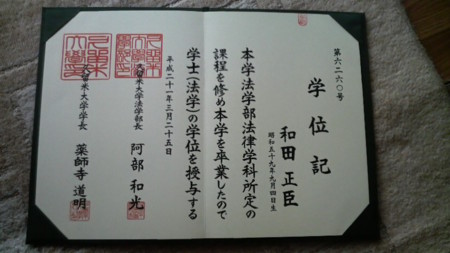 第六二六〇号
学位記
和田正臣
昭和五十九年九月四日生
本学法学部法律学科所定の
課程を修め本学を卒業したので
学士(法学)の学位を授与する
平成二十一年三月二十五日
久留米大学法学部長 阿部和光
久留米大学学長 薬師寺道明